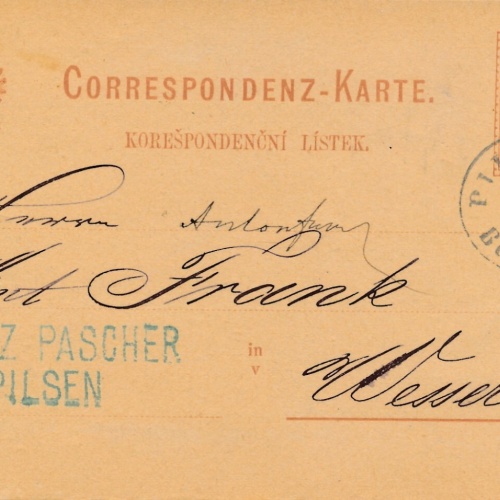 CORRESPONDENZ-KARTE.
KOREŠPONDENČNÍ LÍSTEK.
Frank
Z PASCHER
PILSEN
in
v
Wessel